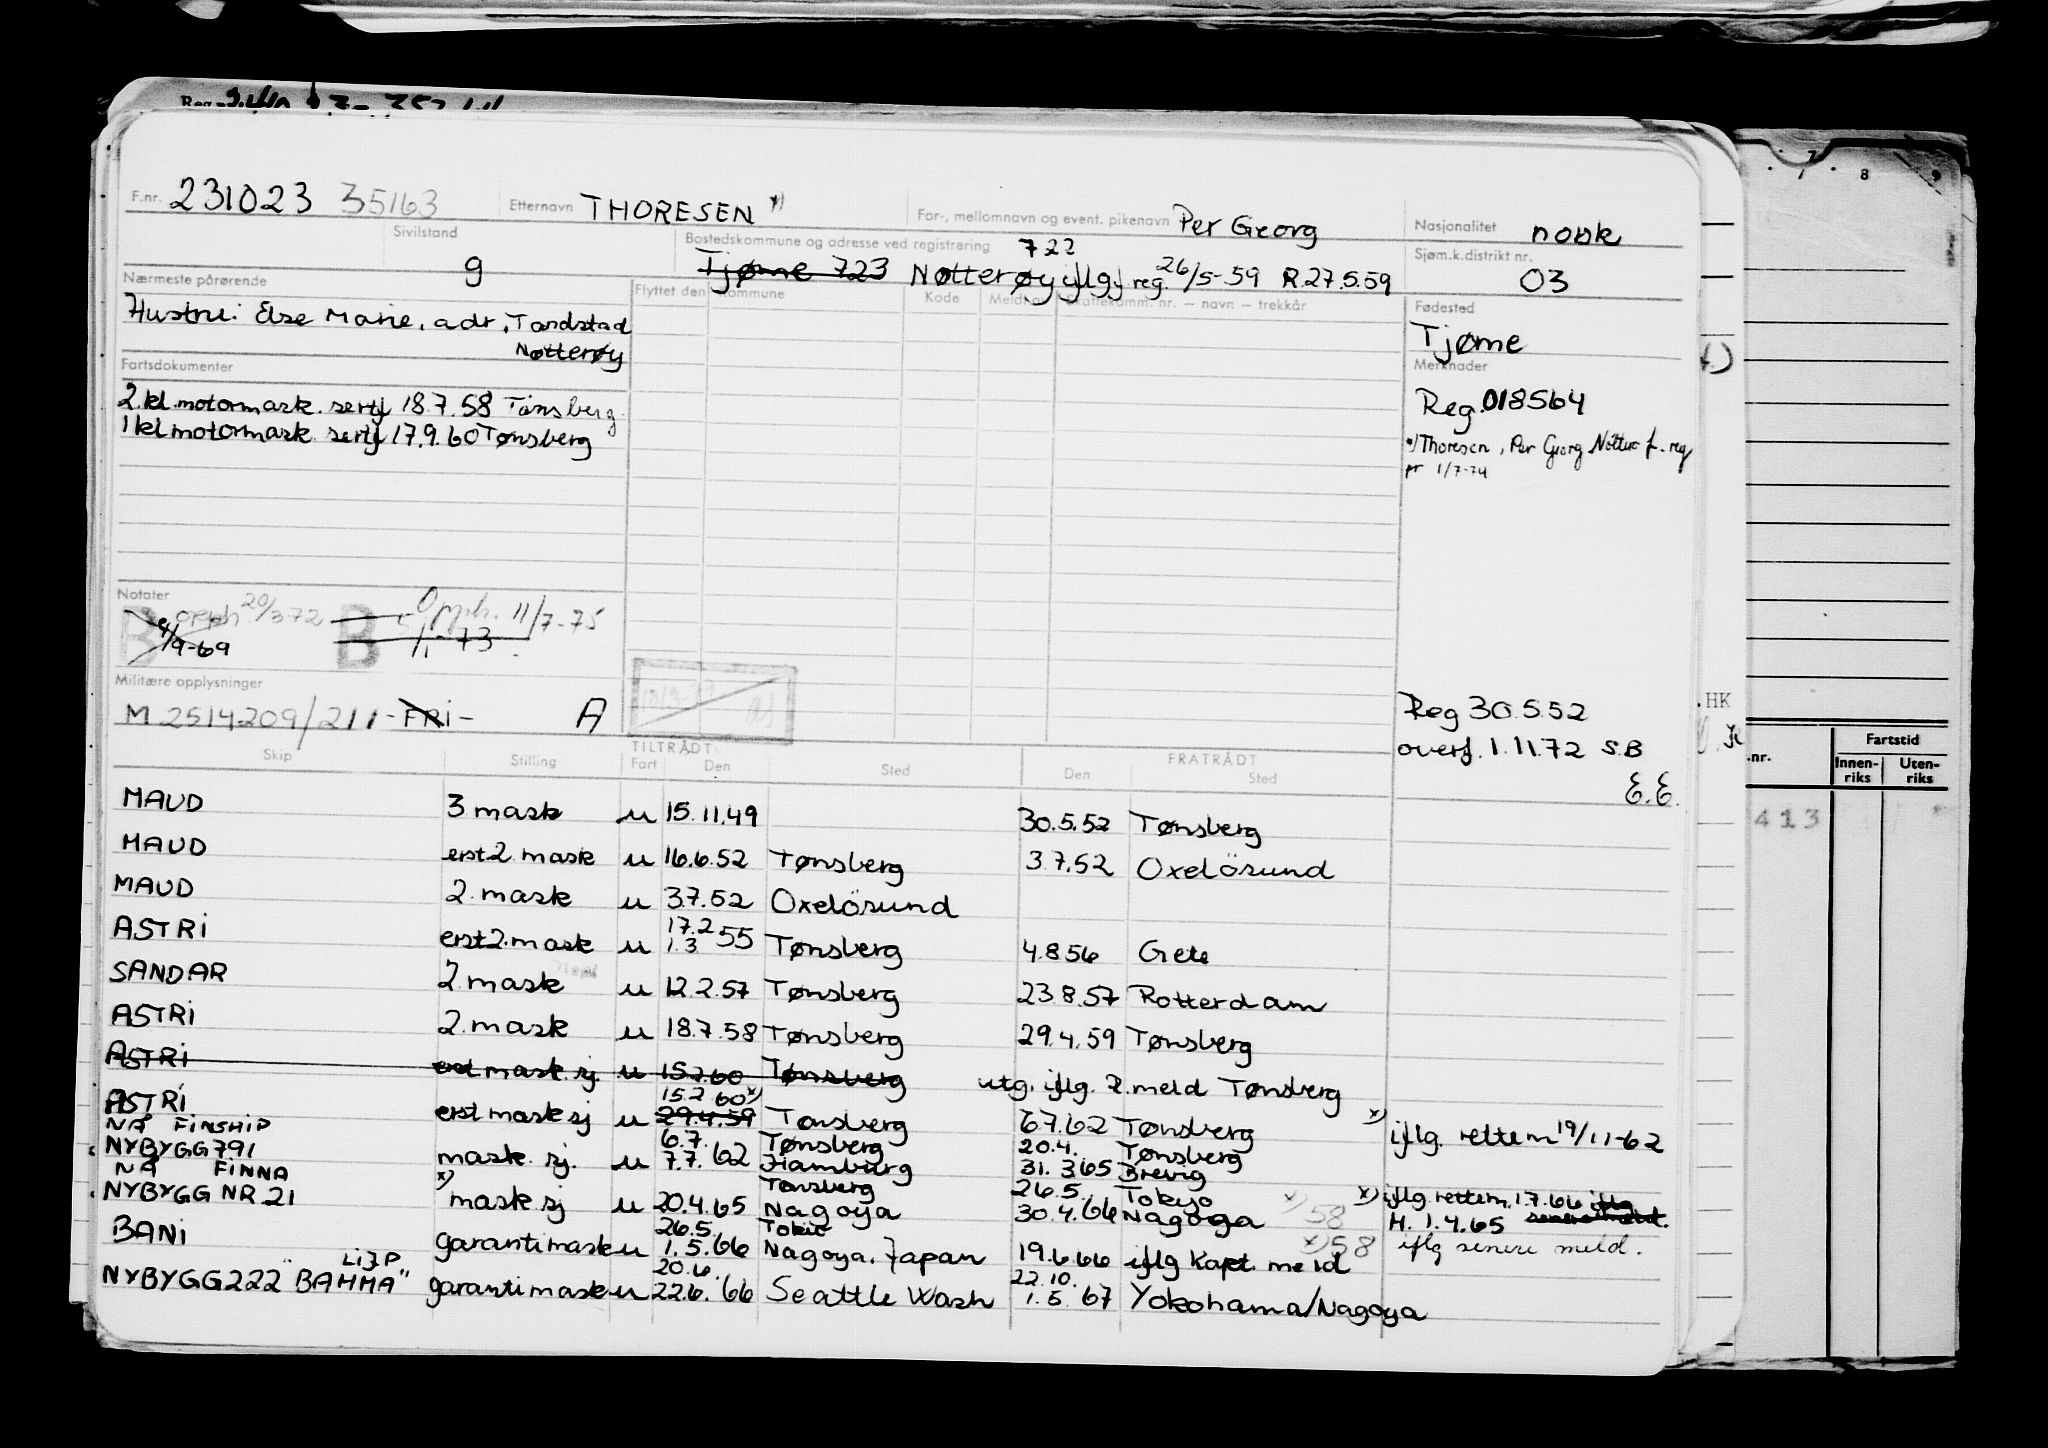 F.nr. 231023 35163 Etternavn THORESEN x) For-, mellomnavn og event. pikenavn Per Georg Nasjonalitet norsk
Sivilstand g Bostedskommune og adresse ved registrering 722 Sjøm.k.distrikt nr. 03
Tjøme 723 Nøtterøy iflg reg. 26/5-59 R.27.5.59
Nærmeste pårørende Flyttet den Kommune Kode Skattekomm. nr. — navn — trekkår Fødested
Hustru: Else Marie, adr., Tandstad Tjøme
Nøtterøy
Fartsdokumenter Merknader
2.kl.motormask.sertf 18.7.58 Tønsberg Reg.018564
1 kl motormask sertf 17.9.60 Tønsberg x) Thoresen, Per Georg f. reg
pr 1/7-74
Notater
B opph 20/372 B Opph. 11/7-75
/9-69 1/1-73
Militære opplysninger
M 2514209/211 -FRI- A Reg 30.5.52
overf. 1.11.72 S.B
E.E.
Skip Stilling TILTRÅDT Fart Den Sted FRATRÅDT Den Sted
MAUD 3 mask u 15.11.49 30.5.52 Tønsberg
MAUD erst 2. mask u 16.6.52 Tønsberg 3.7.52 Oxelösund
MAUD 2. mask u 3.7.52 Oxelösund
17.2
ASTRI erst 2. mask u 1.3 55 Tønsberg 4.8.56 Gete
SANDAR 2. mask u 12.2.57 Tønsberg 23.8.57 Rotterdam
ASTRI 2. mask u 18.7.58 Tønsberg 29.4.59 Tønsberg
ASTRI erst mask. sj. u 15.2.60 Tønsberg utg. iflg. R.meld Tønsberg
15.2 60 x)
ASTRI erst mask sj u 29.4.59 Tønsberg 6.7.62 Tønsberg x) iflg. rettem 19/11-62
NÅ FINSHIP 6.7. Tønsberg 20.4. Tønsberg
NYBYGG 791 mask. sj. u 7.7.62 Hamburg 31.3.65 Brevig
NÅ FINNA x) Tønsberg 26.5. Tokyo x) iflg rettem. 1.7.66 iflg
NYBYGG NR 21 mask sj u 20.4.65 Nagoya 30.4.66 Nagoya x) 58 H. 1.4.65 senere meld.
26.5. Tokio x) 58 iflg senere meld.
BANI garantimask u 1.5.66 Nagoya, Japan 19.6.66 iflg Kapt. meld
LIJP 20.6. 22.10.
NYBYGG 222 "BAMMA" garantimask u 22.6.66 Seattle Wash 1.5.67 Yokohama/Nagoya
7 8 9
.HK
.nr. Fartstid
Innen-riks Uten-riks
413